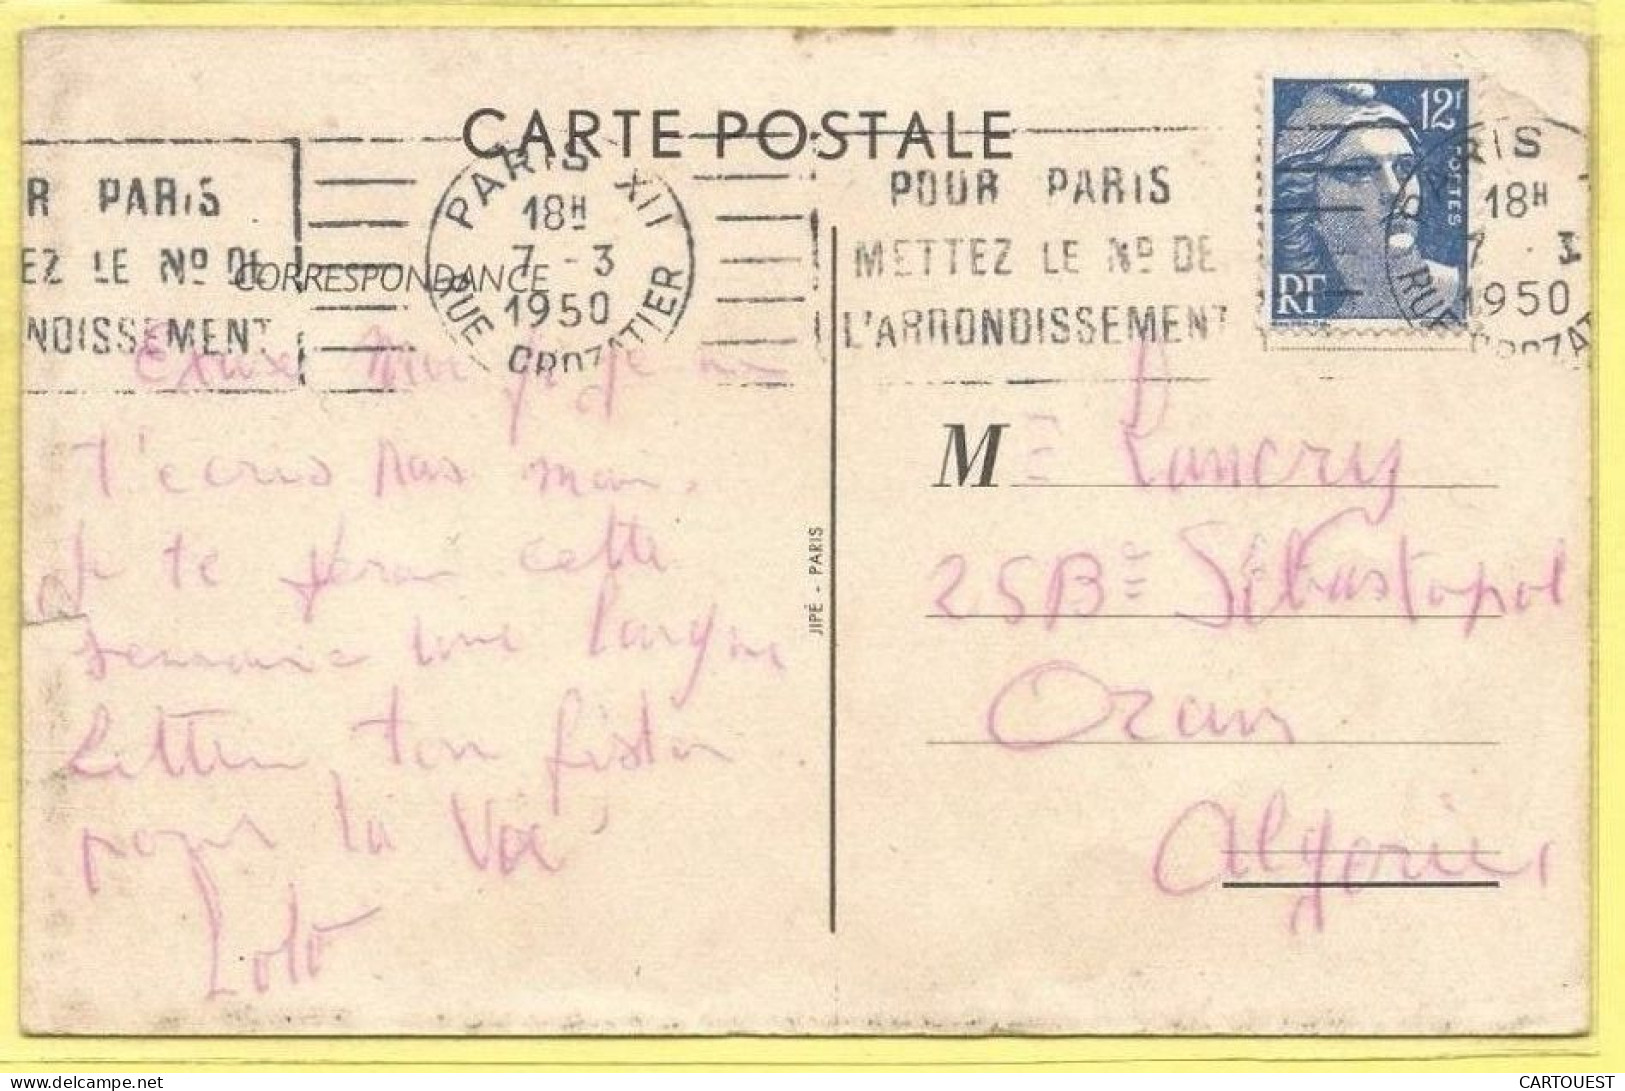 CARTE POSTALE
R PARIS
EZ LE Nº DE
NDISSEMENT
PARIS XII
18H
7 - 3
1950
RUE CROZATIER
POUR PARIS
METTEZ LE Nº DE
L'ARRONDISSEMENT
12F
POSTES
RF
PARIS
18H
7 - 3
1950
RUE CROZAT
CORRESPONDANCE
je
t'ecris pas mais
je te ferai cette
semaine une longue
lettre, ton fiston
pour la vie
Lolo
JIPÉ - PARIS
M Lancry
25 Bd Sébastopol
Oran
Algérie
CARTOUEST
delcampe.net